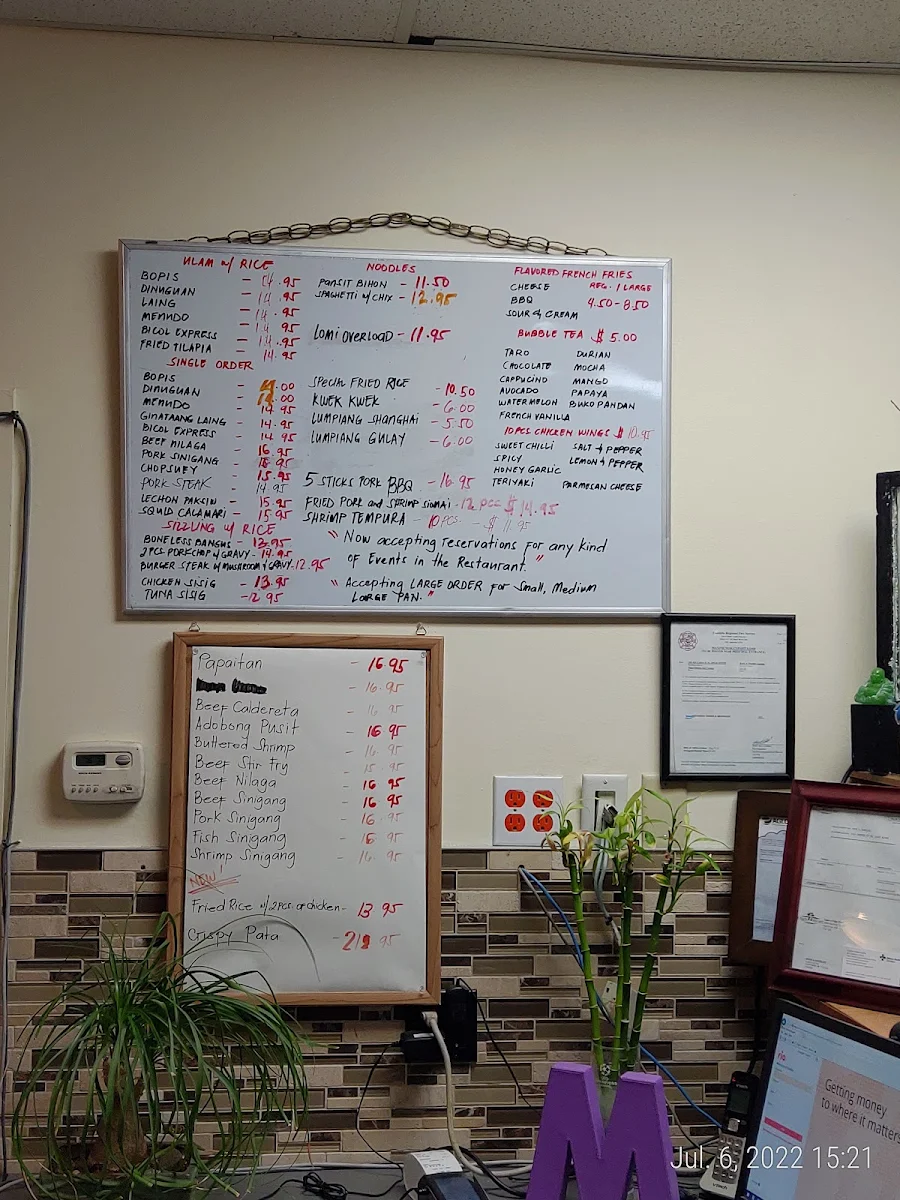 ULAM w/ RICE
BOPIS - 14.95
DINUGUAN - 14.95
LAING - 14.95
MENUDO - 14.95
BICOL EXPRESS - 14.95
FRIED TILAPIA - 14.95
SINGLE ORDER
BOPIS - .00
DINUGUAN - .00
MENUDO - 14.95
GINATAANG LAING - 14.95
BICOL EXPRESS - 14.95
BEEF NILAGA - 16.95
PORK SINIGANG - .95
CHOPSUEY - 15.95
PORK STEAK - 14.95
LECHON PAKSIW - 15.95
SQUID CALAMARI - 15.95
SIZLLING w/ RICE
BONELESS BANGUS - 13.95
2PCS PORKCHOP w/ GRAVY - 14.95
BURGER STEAK w/ MUSHROOM & GRAVY - 12.95
CHICKEN SISIG - 13.95
TUNA SISIG - 12.95
NOODLES
PANSIT BIHON - 11.50
SPAGHETTI w/ CHIX - 12.95
LOMI OVERLOAD - 11.95
SPECIAL FRIED RICE - 10.50
KWEK KWEK - 6.00
LUMPIANG SHANGHAI - 5.50
LUMPIANG GULAY - 6.00
5 STICKS PORK BBQ - 16.95
FRIED PORK and SHRIMP SIOMAI - 12 PCS $ 14.95
SHRIMP TEMPURA - 10 PCS. - $ 11.95
" Now accepting reservations for any kind
of Events in the Restaurant. "
" Accepting LARGE ORDER for Small, Medium
LARGE PAN. "
FLAVORED FRENCH FRIES
REG. / LARGE
CHEESE
BBQ 4.50 - 8.50
SOUR & CREAM
BUBBLE TEA $ 5.00
TARO DURIAN
CHOCOLATE MOCHA
CAPPUCINO MANGO
AVOCADO PAPAYA
WATERMELON BUKO PANDAN
FRENCH VANILLA
10 PCS CHICKEN WINGS $ 10.95
SWEET CHILLI SALT & PEPPER
SPICY LEMON & PEPPER
HONEY GARLIC
TERIYAKI PARMESAN CHEESE
Papaitan - 16.95
- 16.95
Beef Caldereta - 16.95
Adobong Pusit - 16.95
Buttered Shrimp - 16.95
Beef Stir Fry - 15.95
Beef Nilaga - 16.95
Beef Sinigang - 16.95
Pork Sinigang - 16.95
Fish Sinigang - 16.95
Shrimp Sinigang - 16.95
NEW!
Fried Rice w/ 2PCS. of chicken - 13.95
Crispy Pata - .95
Getting money
to where it matters
M
Jul. 6, 2022 15:21